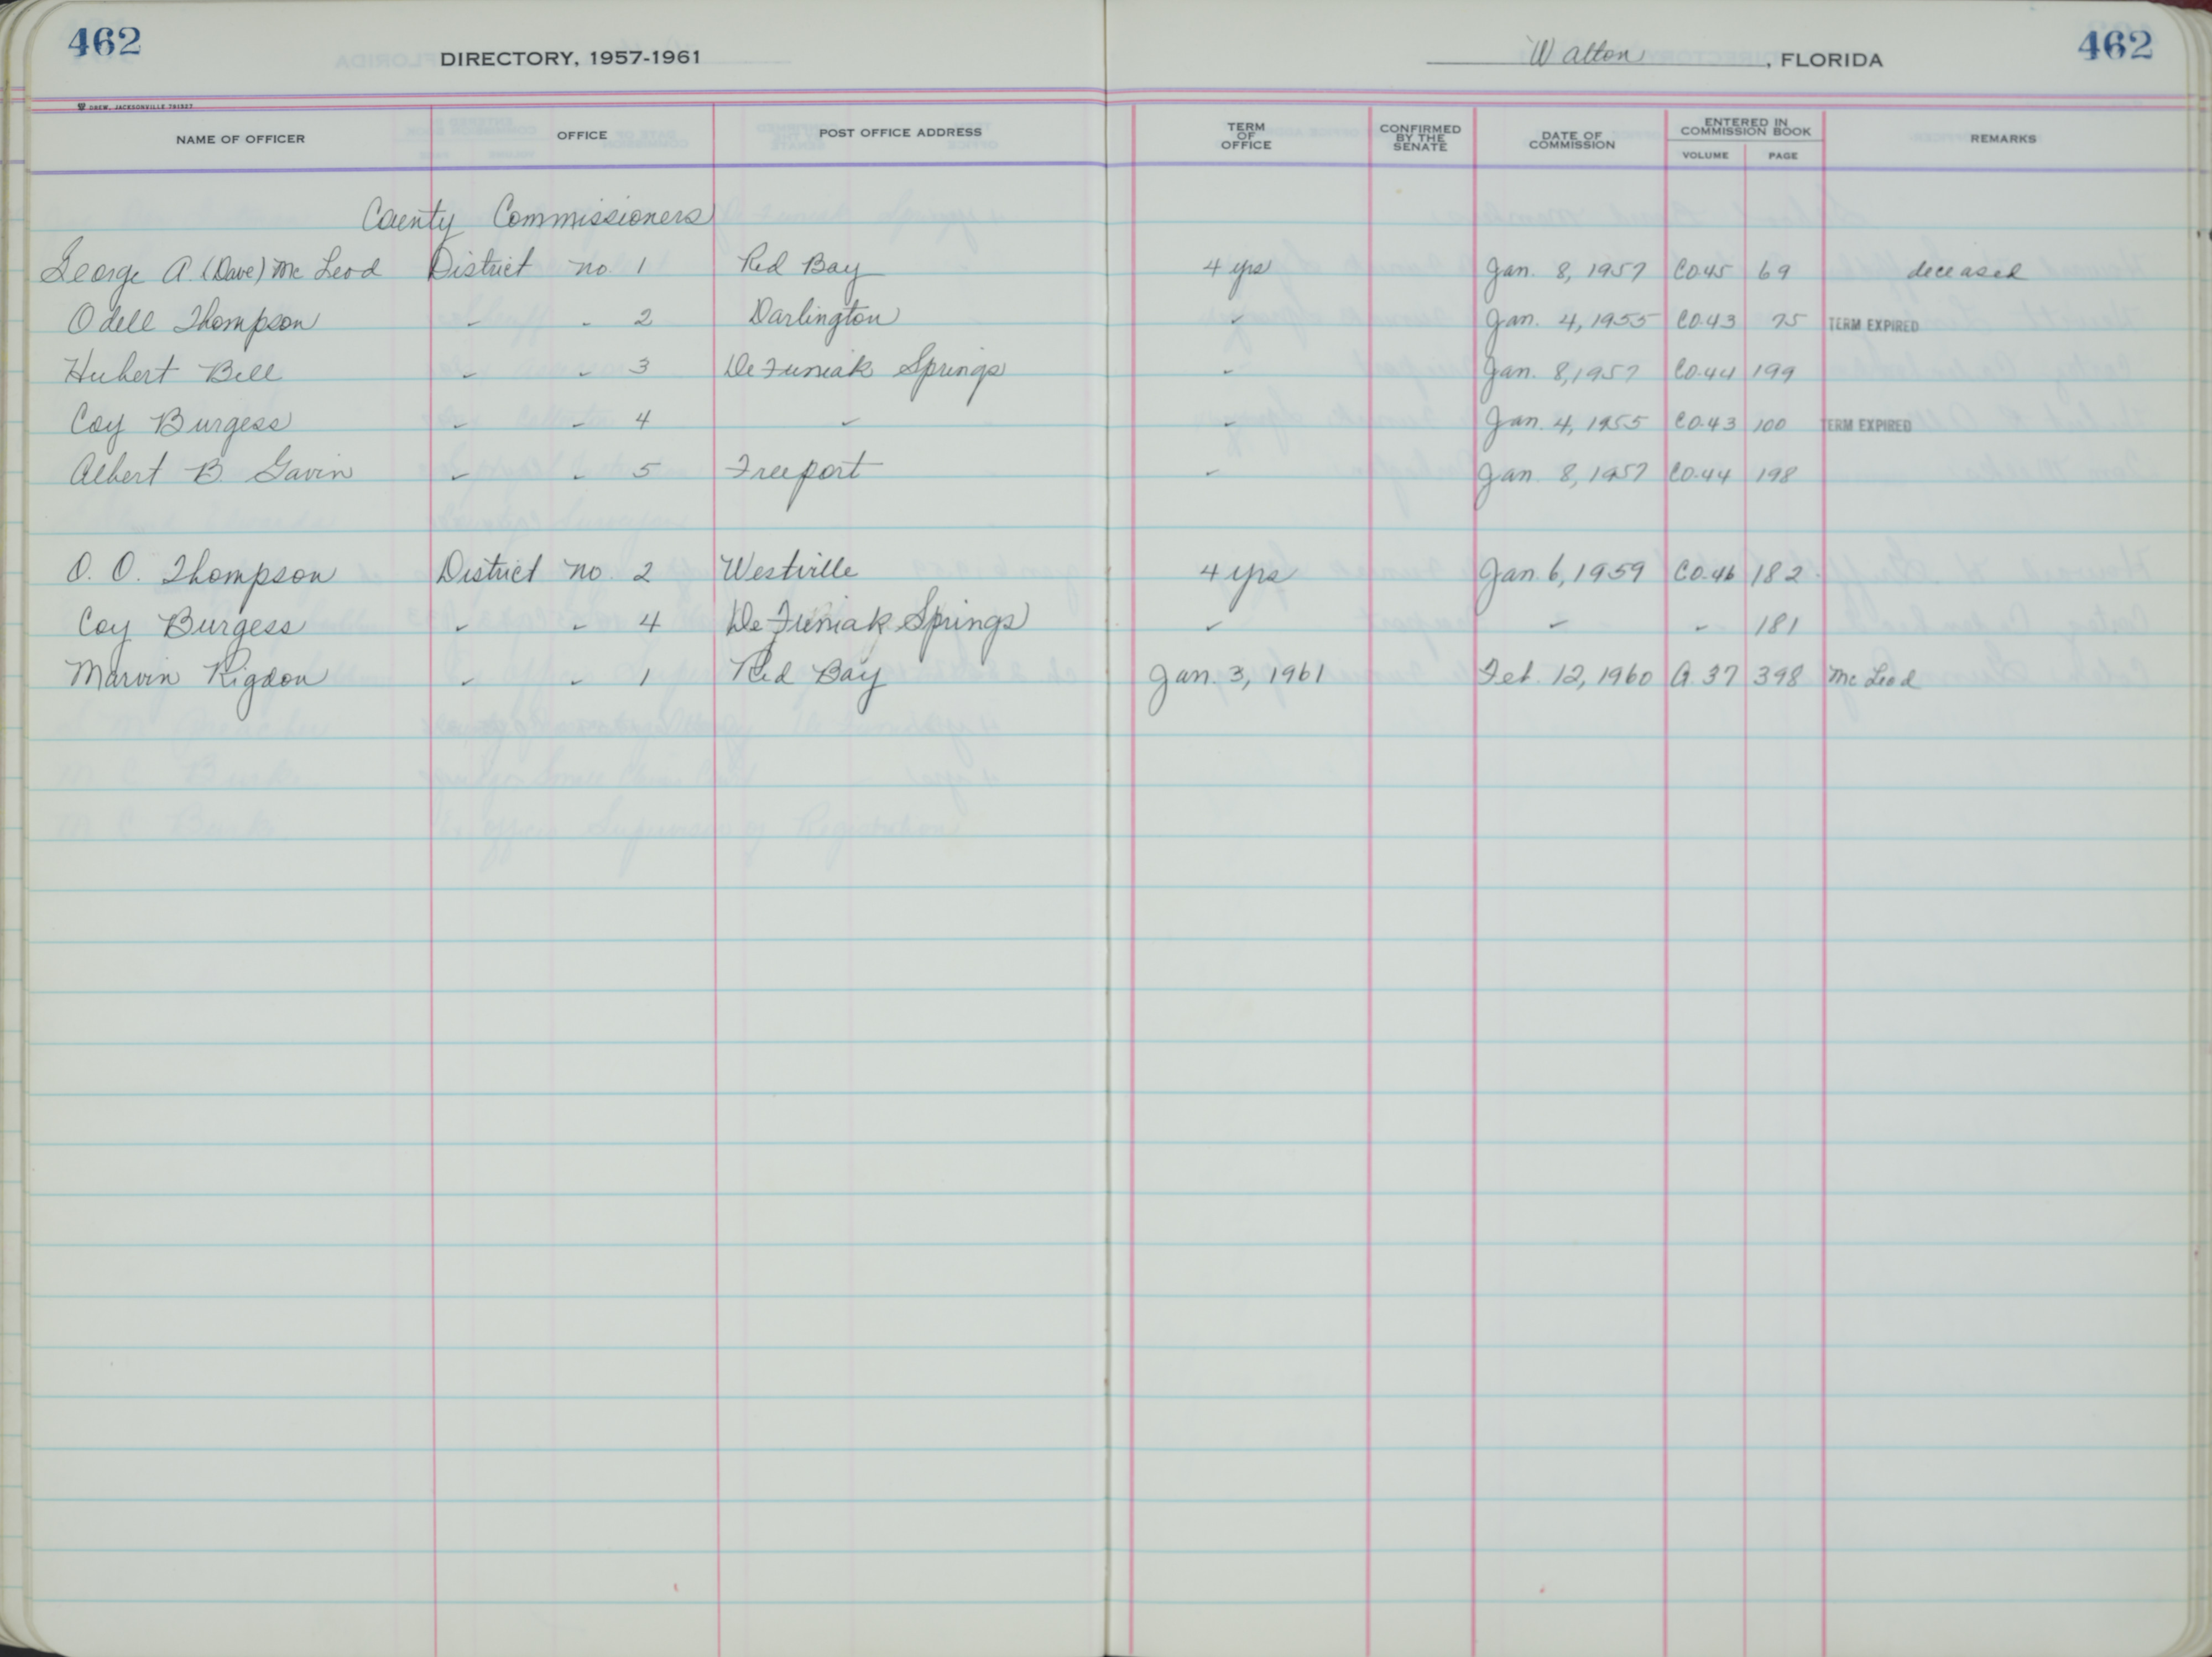 462 DIRECTORY, 1957-1961 Walton, FLORIDA 462
DREW, JACKSONVILLE
NAME OF OFFICER OFFICE POST OFFICE ADDRESS TERM OF OFFICE CONFIRMED BY THE SENATE DATE OF COMMISSION ENTERED IN COMMISSION BOOK VOLUME PAGE REMARKS
County Commissioners
George A. (Dave) Mc Leod District no. 1 Red Bay 4 yrs Jan. 8, 1957 CO.45 69 deceased
Odell Thompson " " 2 Darlington " Jan. 4, 1955 CO.43 75 TERM EXPIRED
Hubert Bell " " 3 De Funiak Springs " Jan. 8, 1957 CO.44 199
Coy Burgess " " 4 " " Jan. 4, 1955 CO.43 100 TERM EXPIRED
Albert B. Gavin " " 5 Freeport " Jan. 8, 1957 CO.44 198
O. O. Thompson District no. 2 Westville 4 yrs Jan. 6, 1959 CO.46 182
Coy Burgess " " 4 De Funiak Springs " " " 181
Marvin Rigdon " " 1 Red Bay Jan. 3, 1961 Feb. 12, 1960 G. 37 398 Mc Leod